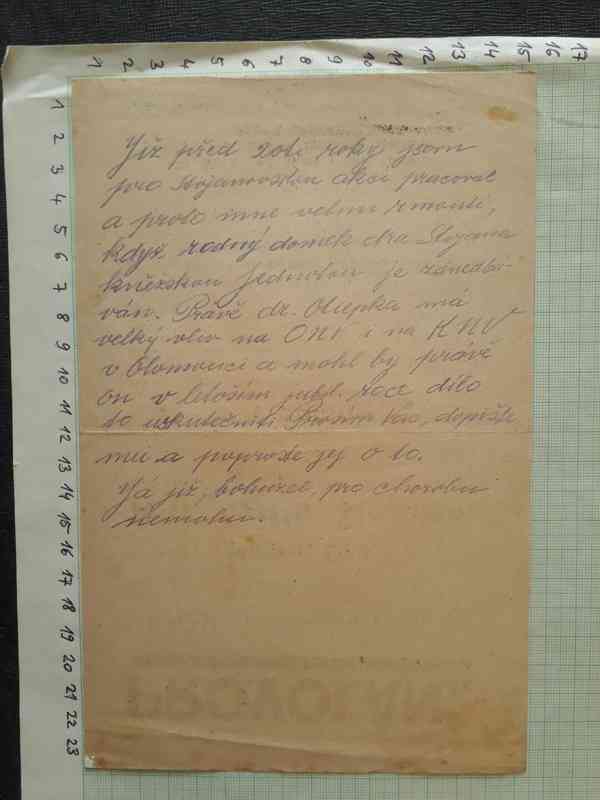 1 2 3 4 5 6 7 8 9 10 11 12 13 14 15 16 17
1 2 3 4 5 6 7 8 9 10 11 12 13 14 15 16 17 18 19 20 21 22 23
Již před 20ti roky jsem
pro Stojanovskou akci pracoval
a proto mne velmi rmoutí,
když rodný domek dra Stojana
kněžskou Jednotou je zanedbá-
ván. Právě dr. má
velký vliv na ONV i na KNV
v Olomouci a mohl by právě
on v letošním jubil. roce dílo
to uskutečniti. Prosím Vás, dopište
mu a poproste jej o to.
Já již, bohužel, pro chorobu
nemohu.
PROVOLÁNÍ